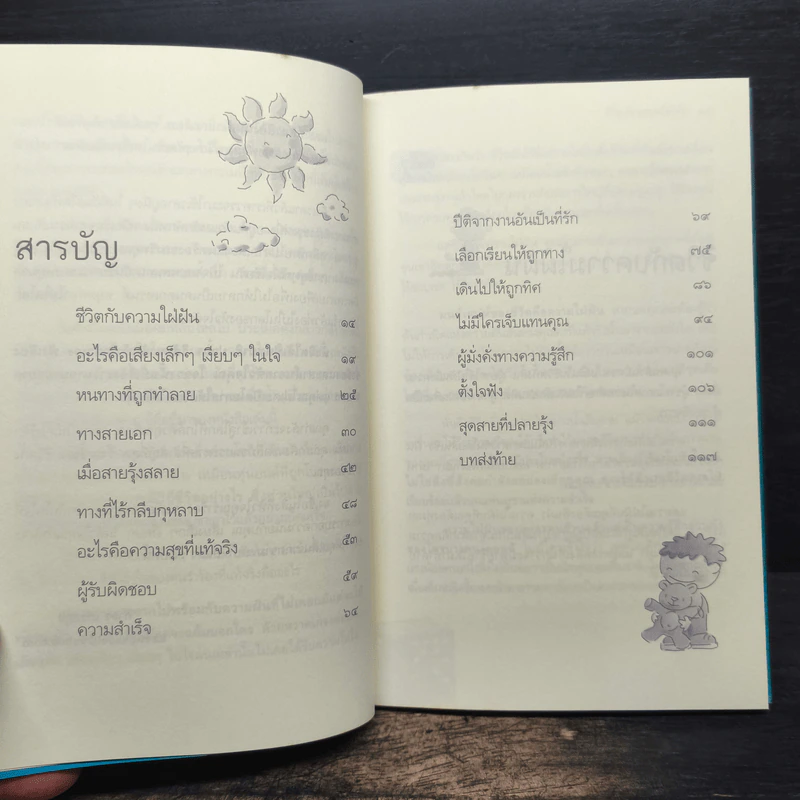 สารบัญ
ชีวิตกับความใฝ่ฝัน ๑๔
อะไรคือเสียงเล็กๆ เงียบๆ ในใจ ๑๙
หนทางที่ถูกทำลาย ๒๕
ทางสายเอก ๓๐
เมื่อสายรุ้งสลาย ๔๒
ทางที่ไร้กลีบกุหลาบ ๔๘
อะไรคือความสุขที่แท้จริง ๕๓
ผู้รับผิดชอบ ๕๙
ความสำเร็จ ๖๔
ปีติจากงานอันเป็นที่รัก ๖๙
เลือกเรียนให้ถูกทาง ๗๕
เดินไปให้ถูกทิศ ๘๖
ไม่มีใครเจ็บแทนคุณ ๙๔
ผู้มั่งคั่งทางความรู้สึก ๑๐๑
ตั้งใจฟัง ๑๐๖
สุดสายที่ปลายรุ้ง ๑๑๑
บทส่งท้าย ๑๑๗